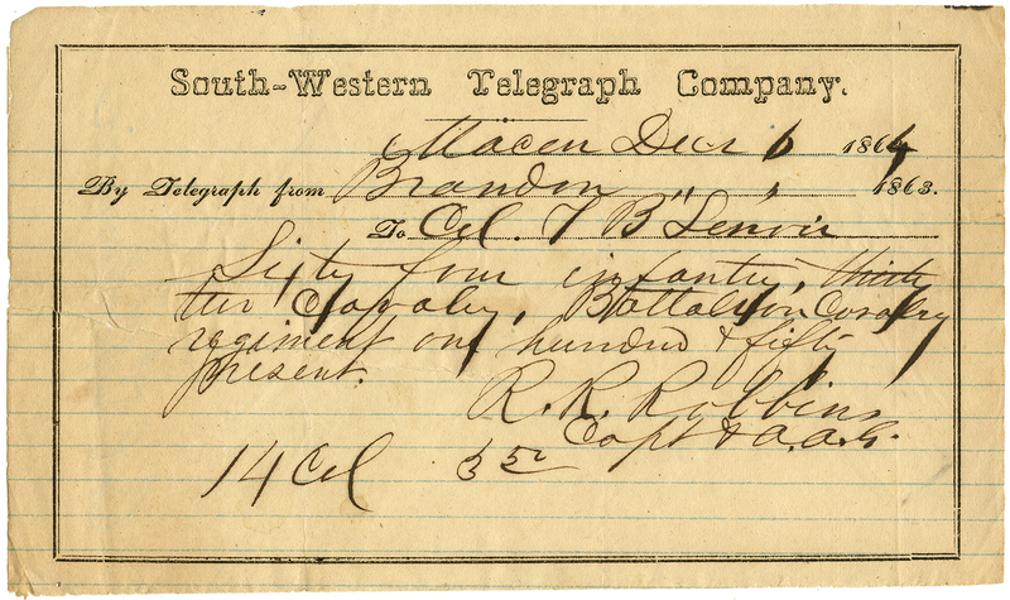 South-Western Telegraph Company.
Macon Decr 6 1864
By Telegraph from Brandon " , 1863.
To Col. T B Lenoir
Sixty four infantry, thirty
two Cavalry, Battallion Cavalry
regiment one hundred & fifty
present.
R. R. Robbins
Capt & A.A.G.
14 Col